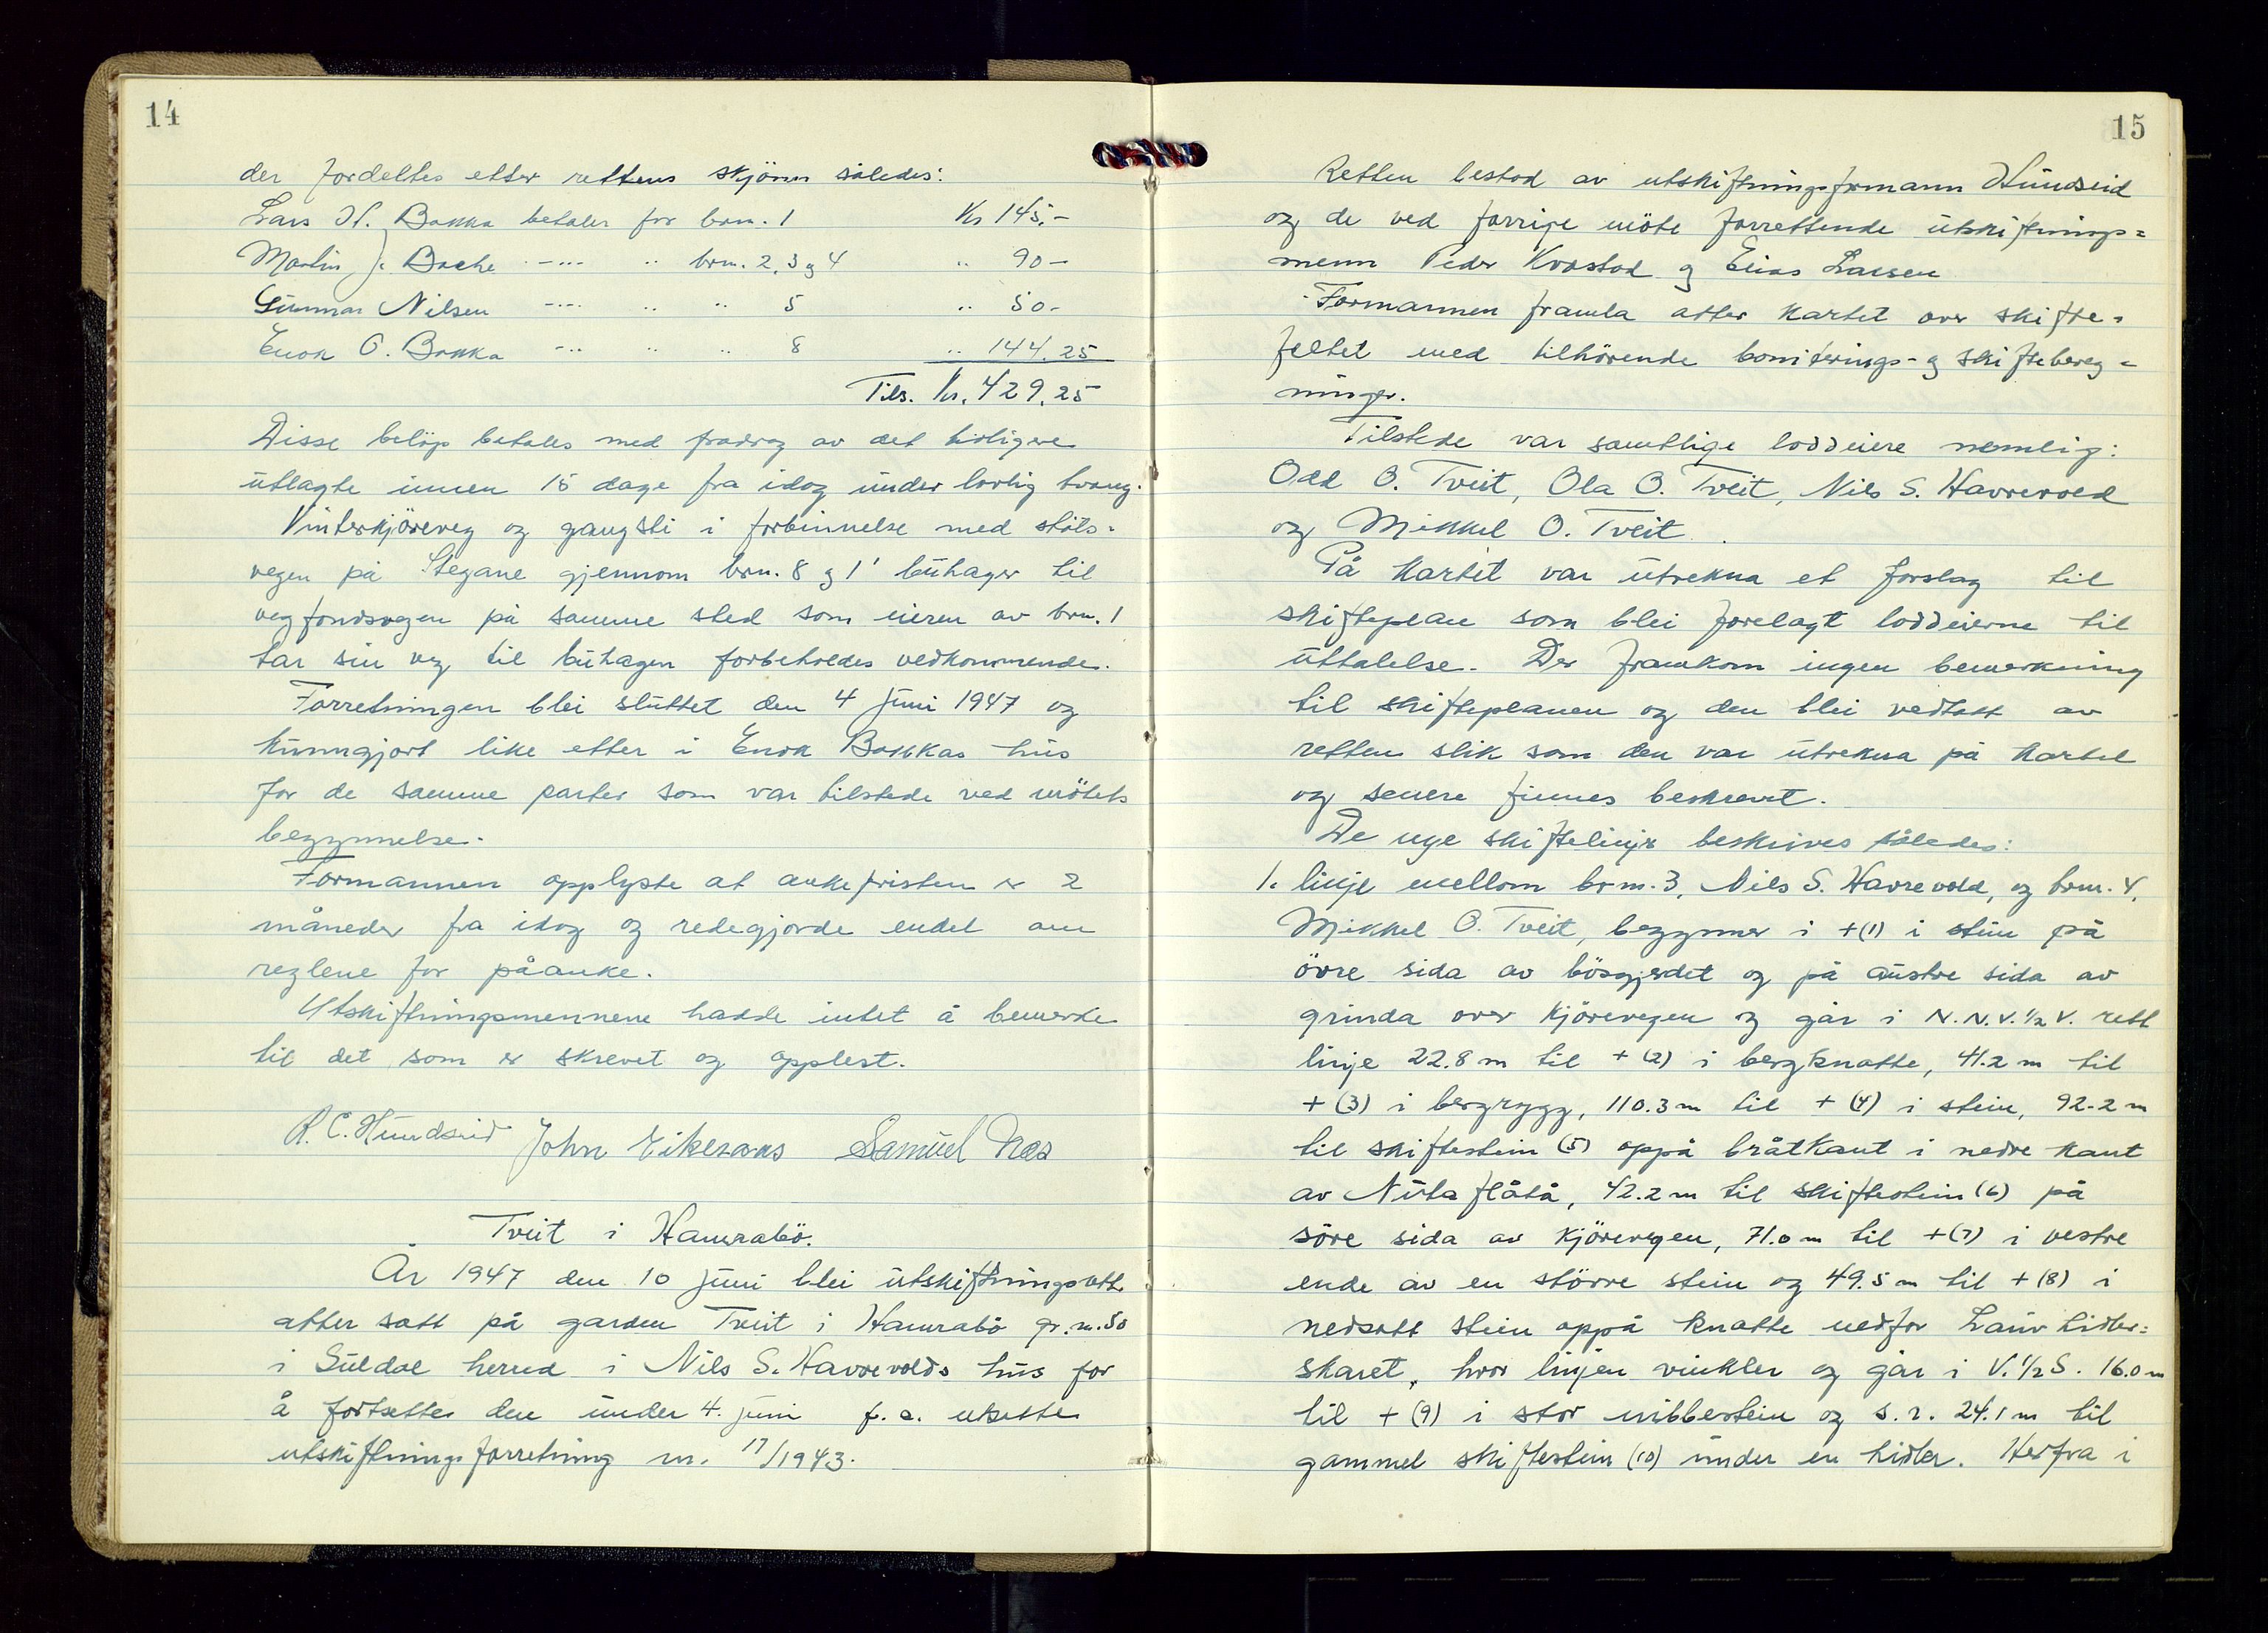 14
der fordeltes etter rettens skjönn således:
Lars H. Bakka betaler for brn. 1 Kr 145.-
Martin J. Bache -"- " brn. 2, 3 og 4 " 90 -
Gunnar Nilsen -"- " " 5 " 50 -
Enok O. Bakka -"- " " 8 " 144.25
Tils. Kr. 429.25
Disse belöp betales med fradrag av det tidligere
utlagte innen 15 dage fra idag under lovlig tvang.
Vinterkjöreveg og gangsti i forbinnelse med stöls-
vegen på Stegane gjennom brn. 8 og 1' buhager til
vegfondsvegen på samme sted som eieren av brn. 1
tar sin veg til buhagen forbeholdes vedkommende.
Forretningen blei sluttet den 4 juni 1947 og
kunngjort like etter i Enok Bakkas hus
for de samme parter som var tilstede ved mötets
begynnelse.
Formannen opplyste at ankefristen er 2
måneder fra idag og redegjorde endel om
reglene for påanke.
Utskiftningsmennene hadde intet å bemerke
til det som er skrevet og opplest.
R. C. Hundseid John Eikesaas Samuel Næs
Tveit i Hamrabö.
År 1947 den 10 juni blei utskiftningsrett
atter satt på garden Tveit i Hamrabö gr.n. 50
i Suldal herred i Nils S. Havrevolds hus for
å fortsette den under 4. juni f. a. utsette
utskiftningsforretning nr. 17/1943.
15
Retten bestod av utskiftningsformann Hundseid
og de ved forrige möte forrettende utskiftnings-
menn Peder Kvastad og Elias Larsen
Formannen framla atter kartet over skifte-
feltet med tilhörende boniterings- og skiftebereg-
ninger.
Tilstede var samtlige loddeiere nemlig:
Odd O. Tveit, Ola O. Tveit, Nils S. Havrevold
og Mikkel O. Tveit.
På kartet var utrekna et forslag til
skifteplan som blei forelagt loddeierne til
uttalelse. Der framkom ingen bemerkning
til skifteplanen og den blei vedtatt av
retten slik som den var utrekna på kartet
og senere finnes beskrevet.
De nye skiftelinjer beskrives således:
1. linje mellom brn. 3, Nils S. Havrevold, og brn. 4,
Mikkel O. Tveit, begynner i +(1) i stein på
övre sida av bösgjerdet og på austre sida av
grinda over kjörevegen og går i N.N.V.½V. rett
linje 22.8 m til +(2) i bergknatte, 41.2 m til
+(3) i bergrygg, 110.3 m til +(4) i stein, 92.2 m
til skiftestein (5) oppå bråtkant i nedre kant
av Nutaflåtå, 42.2 m til skiftestein (6) på
söre sida av kjörevegen, 71.0 m til +(7) i vestre
ende av en större stein og 49.5 m til +(8) i
nedsatt stein oppå knatte nedfor Lauvhidler-
skaret, hvor linjen vinkler og går i V.½S. 16.0 m
til +(9) i stor nibbestein og s. r. 24.1 m til
gammel skiftestein (10) under en hidler. Herfra i